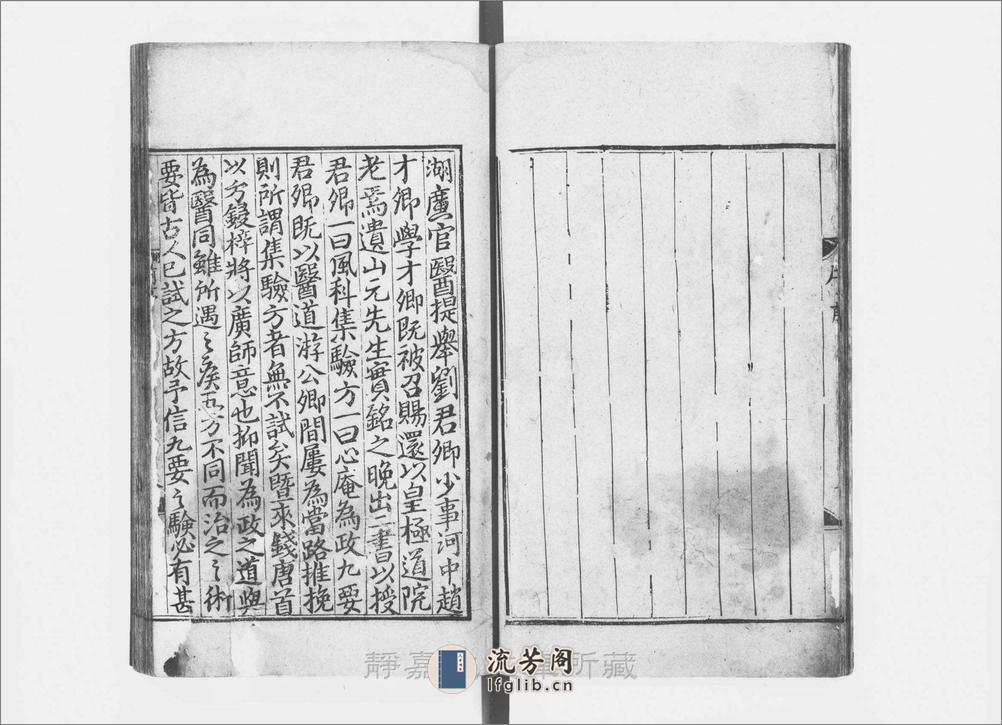 湖廣官醫提舉劉君卿少事河中趙
才卿學才卿既被召賜還以皇極道院
老焉遺山元先生實銘之晚出二書以授
君卿一曰風科集驗方一曰心庵為政九要
君卿既以醫道游公卿間屢為當路推挽
則所謂集驗方者無不試矣暨來錢唐首
以方鋟梓將以廣師意也抑聞為政之道與
為醫同雖所遇之疾五方不同而治之之術
要皆古人已試之方故予信九要之驗必有甚
靜嘉 所藏
流芳阁
lfglib.cn